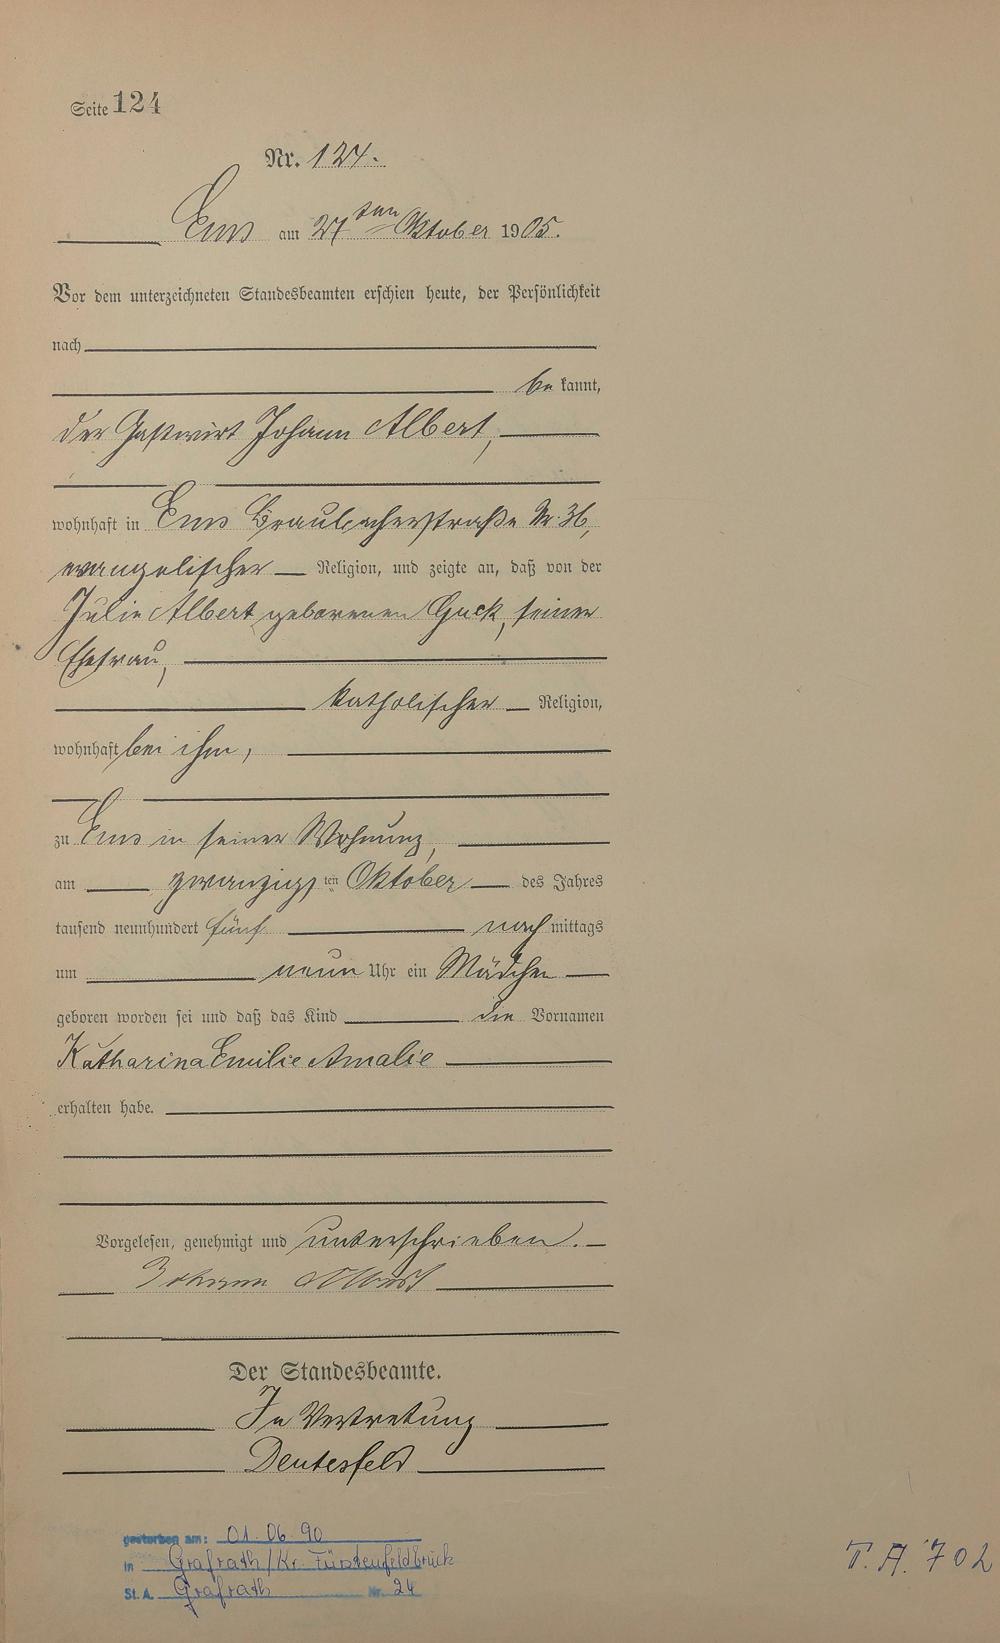 Seite 124
Nr. 124.
Ems am 27ten Oktober 1905.
Vor dem unterzeichneten Standesbeamten erschien heute, der Persönlichkeit
nach
be kannt,
der Gastwirt Johann Albert,
wohnhaft in Ems Braubacherstraße Nr. 36,
evangelischer Religion, und zeigte an, daß von der
Julie Albert geborenen Guck, seiner
Ehefrau,
katholischer Religion,
wohnhaft bei ihm,
zu Ems in seiner Wohnung,
am zwanzigsten Oktober des Jahres
tausend neunhundert fünf nach mittags
um neun Uhr ein Mädchen
geboren worden sei und daß das Kind die Vornamen
Katharina Emilie Amalie
erhalten habe.
Vorgelesen, genehmigt und unterschrieben.
Johann Albert
Der Standesbeamte.
In Vertretung
Deutesfeld
gestorben am: 01.06.90
in Grafrath/Kr. Fürstenfeldbruck
St. A. Grafrath Nr. 24
T.A. 702